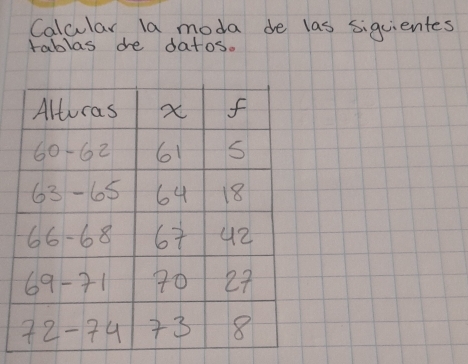 Calcular la moda de las siguientes
tablas de datos.
Alturas x f
60-62 61 5
63-65 64 18
66-68 67 42
69-71 70 27
72-74 73 8